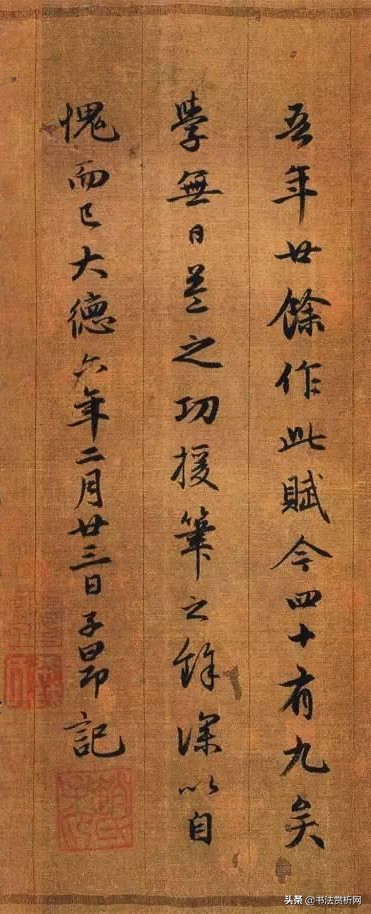 吾年廿餘作此賦今四十有九矣
學無日益之功援筆之餘深以自
愧而已大德六年二月廿三日子昂記
頭条 @书法赏析网